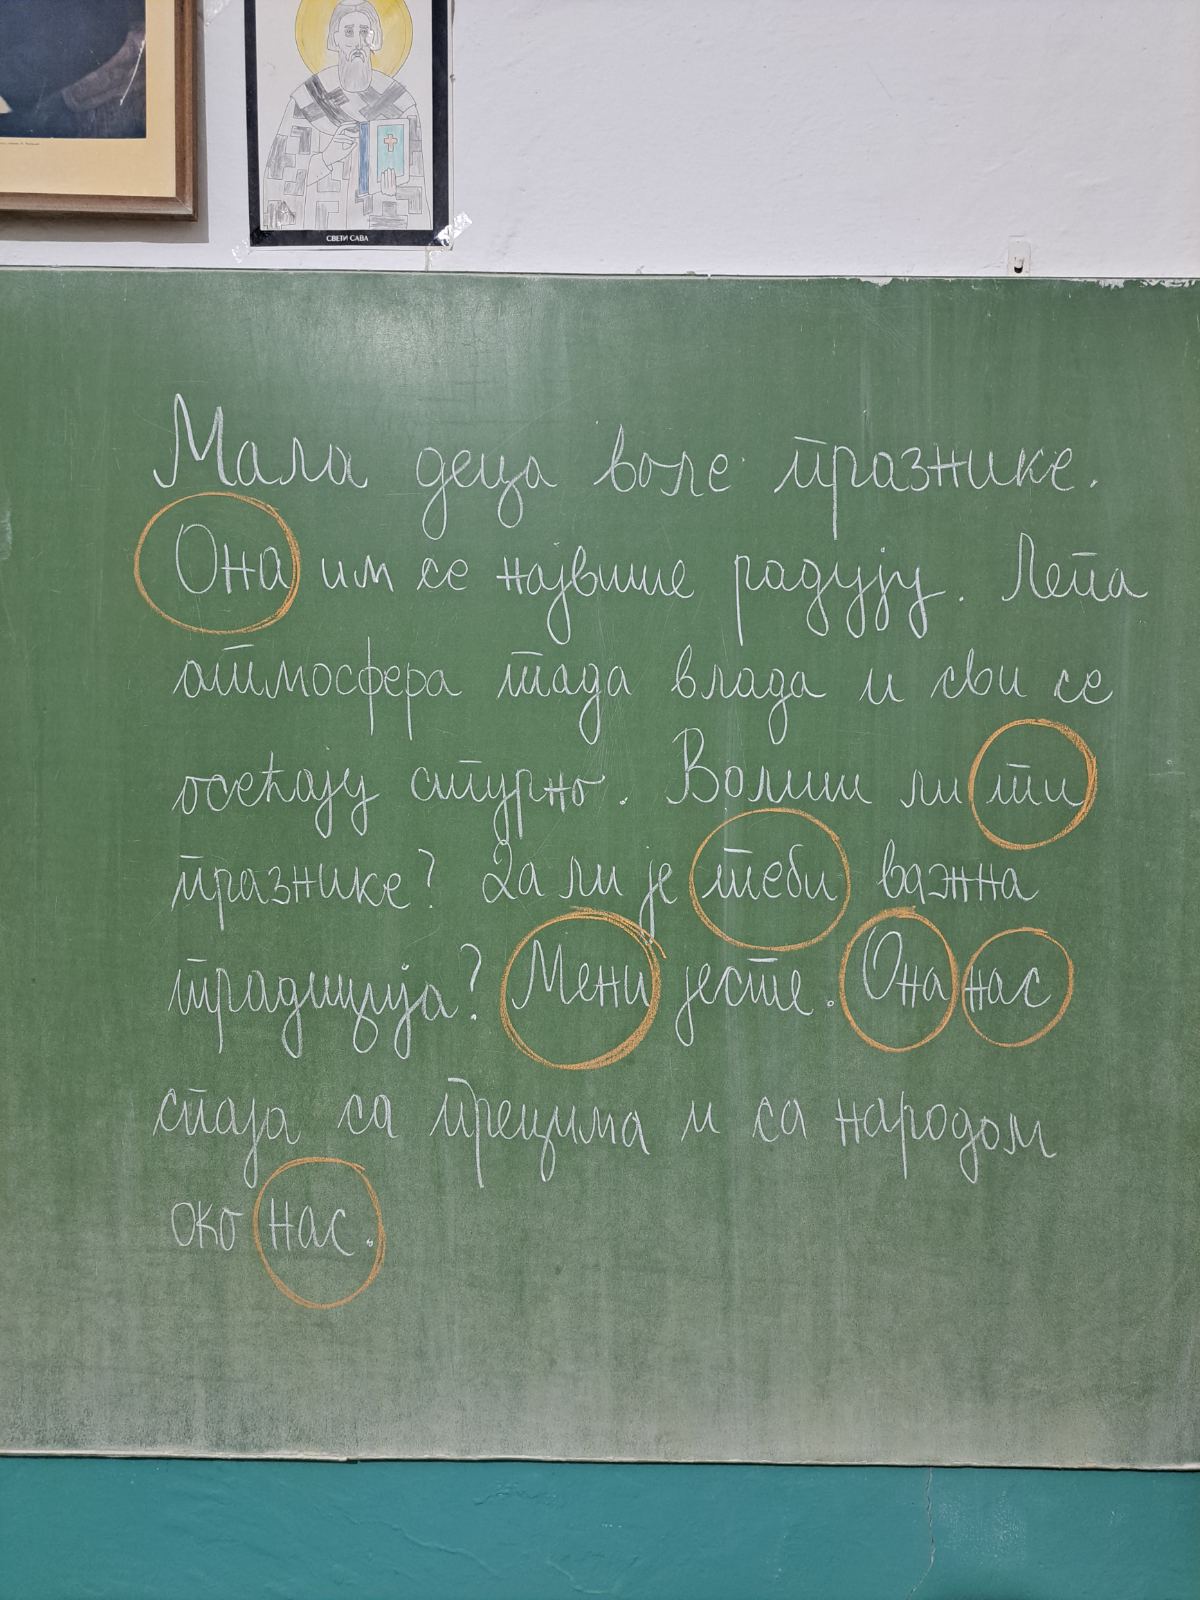 СВЕТИ САВА
Мала деца воле празнике.
Она им се највише радују. Лепа
атмосфера тада влада и сви се
осећају сигурно. Волиш ли ти
празнике? Да ли је теби важна
традиција? Мени јесте. Она нас
спаја са прецима и са народом
око нас.